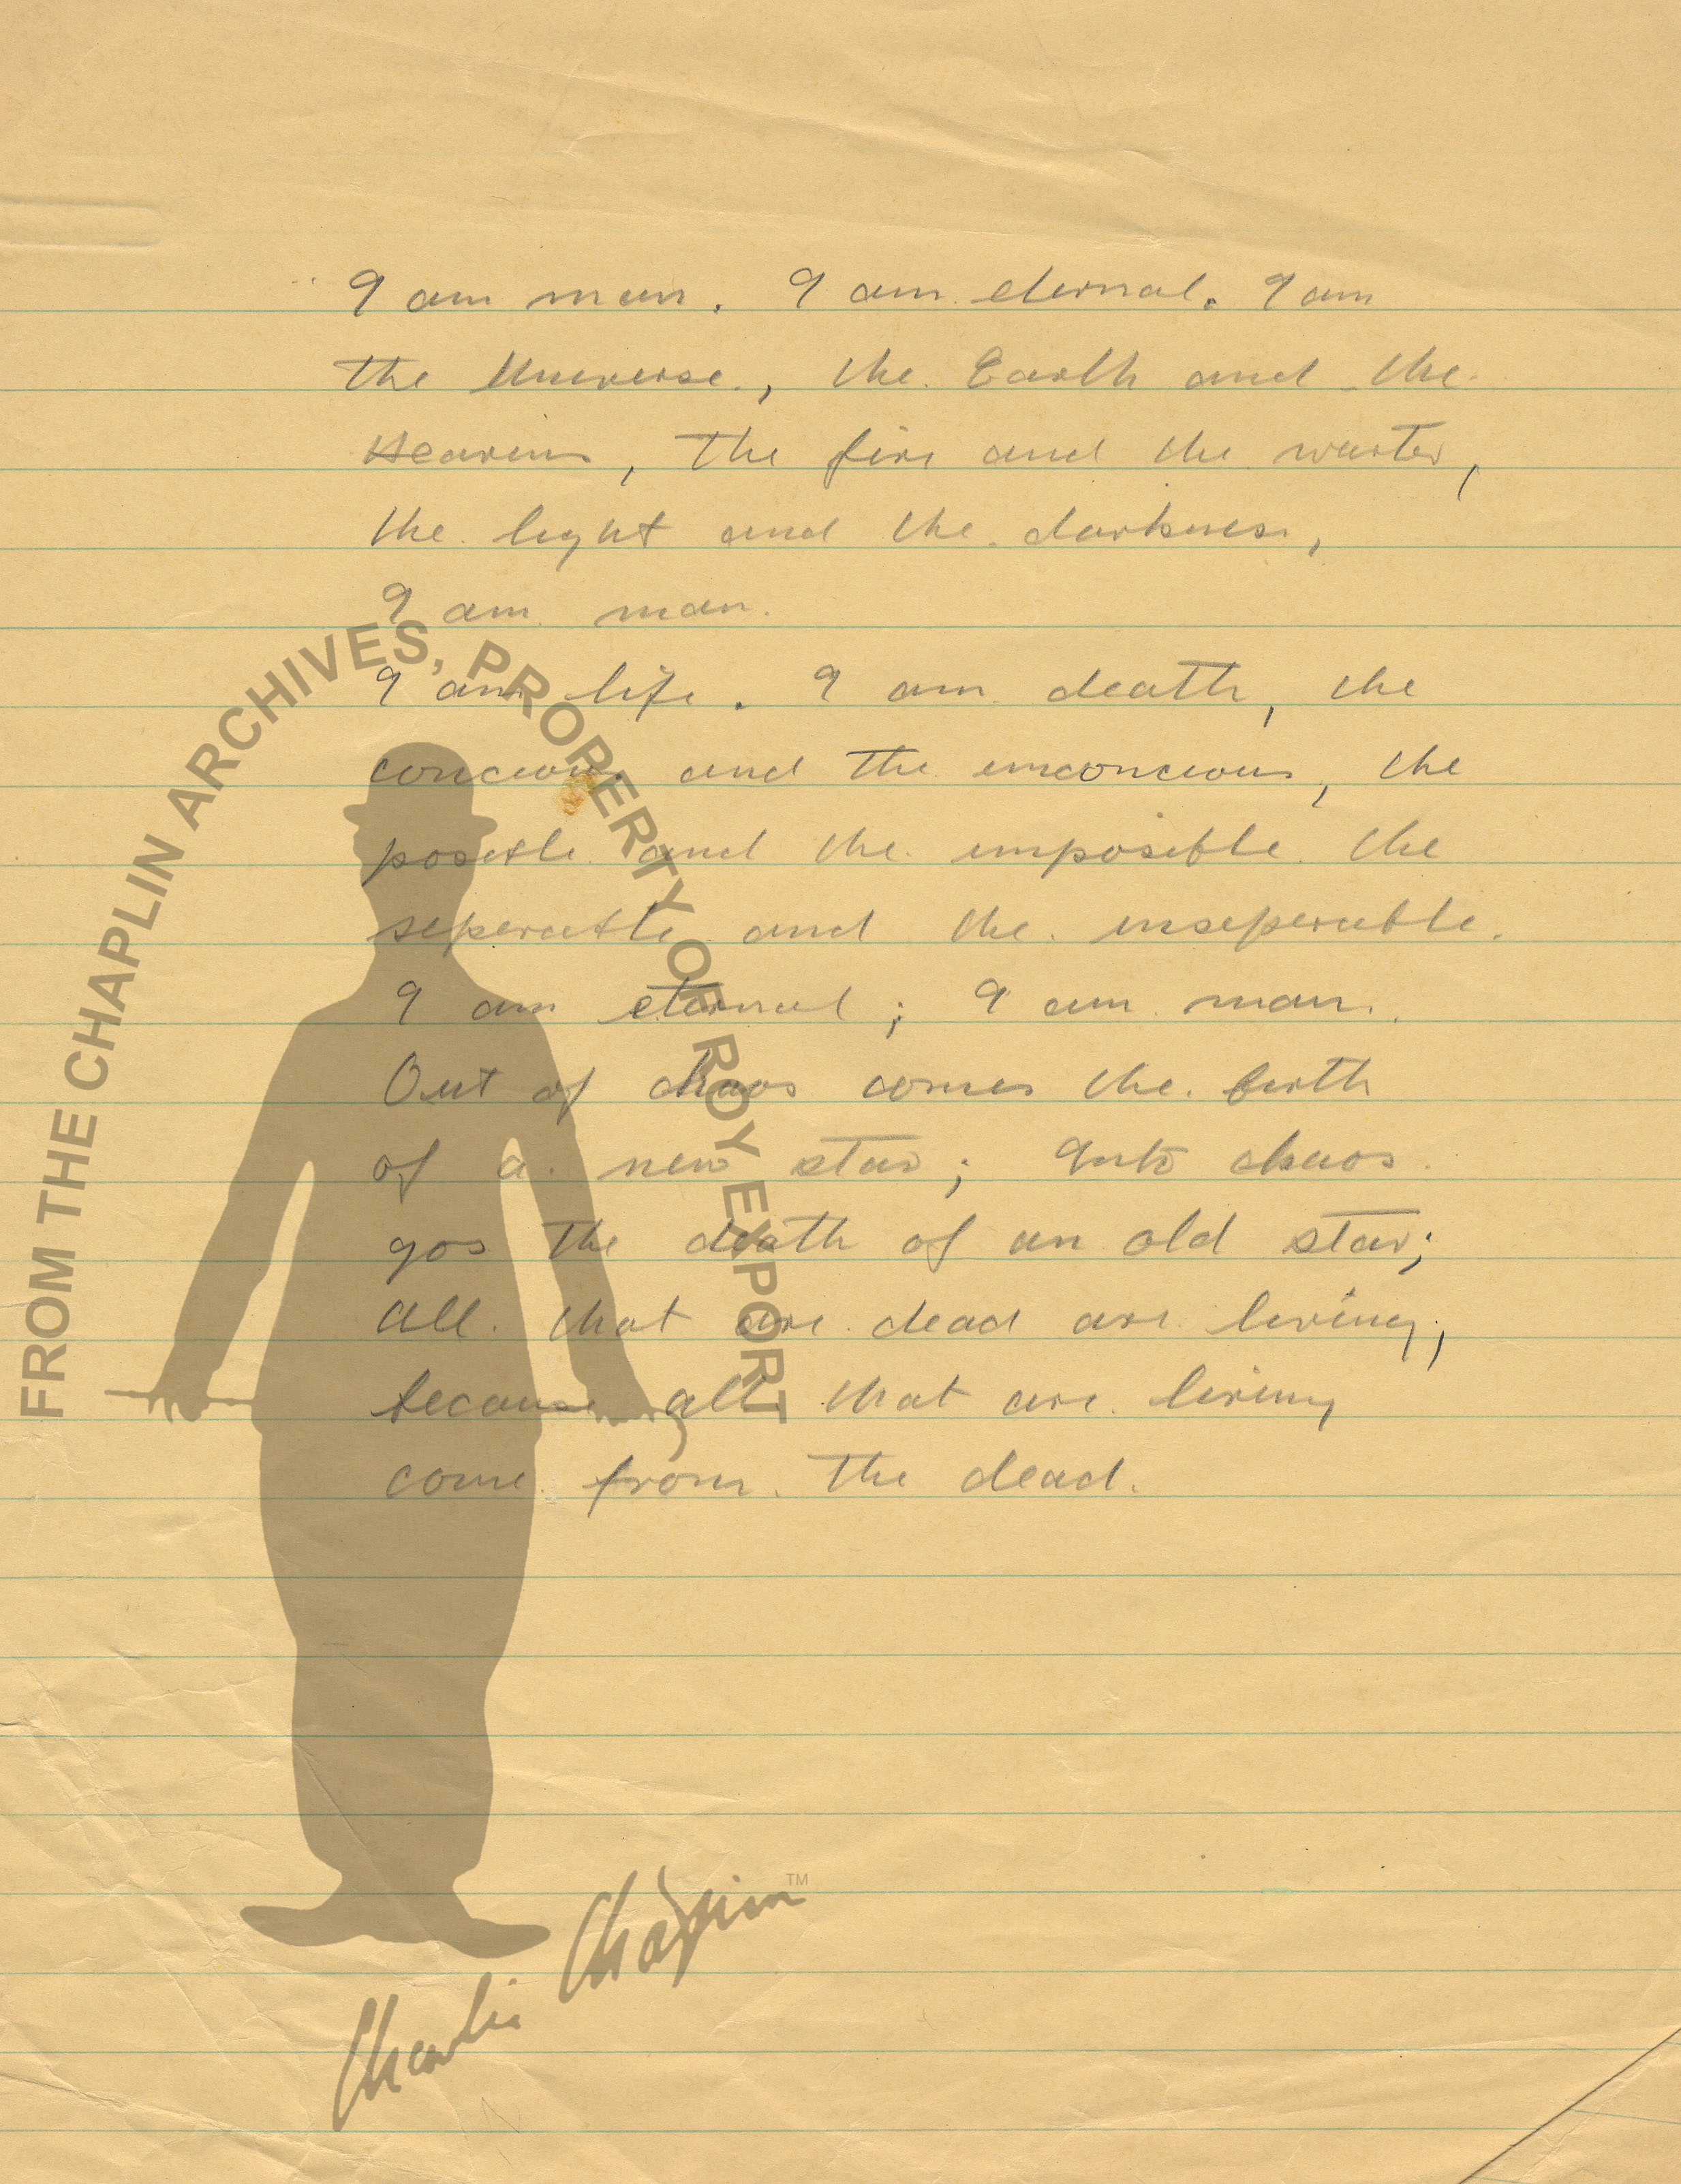 I am man. I am eternal. I am
the Universe, the Earth and the
Heavens, the fire and the water,
the light and the darkness,
I am man.
I am life. I am death, the
concious and the unconcious, the
posible and the imposible the
seperable and the inseperable.
I am eternal; I am man.
Out of chaos comes the birth
of a new star; Into chaos
gos the death of an old star;
all that are dead are living,
because all that are living
come from the dead.
FROM THE CHAPLIN ARCHIVES, PROPERTY OF ROY EXPORT
Charlie Chaplin™